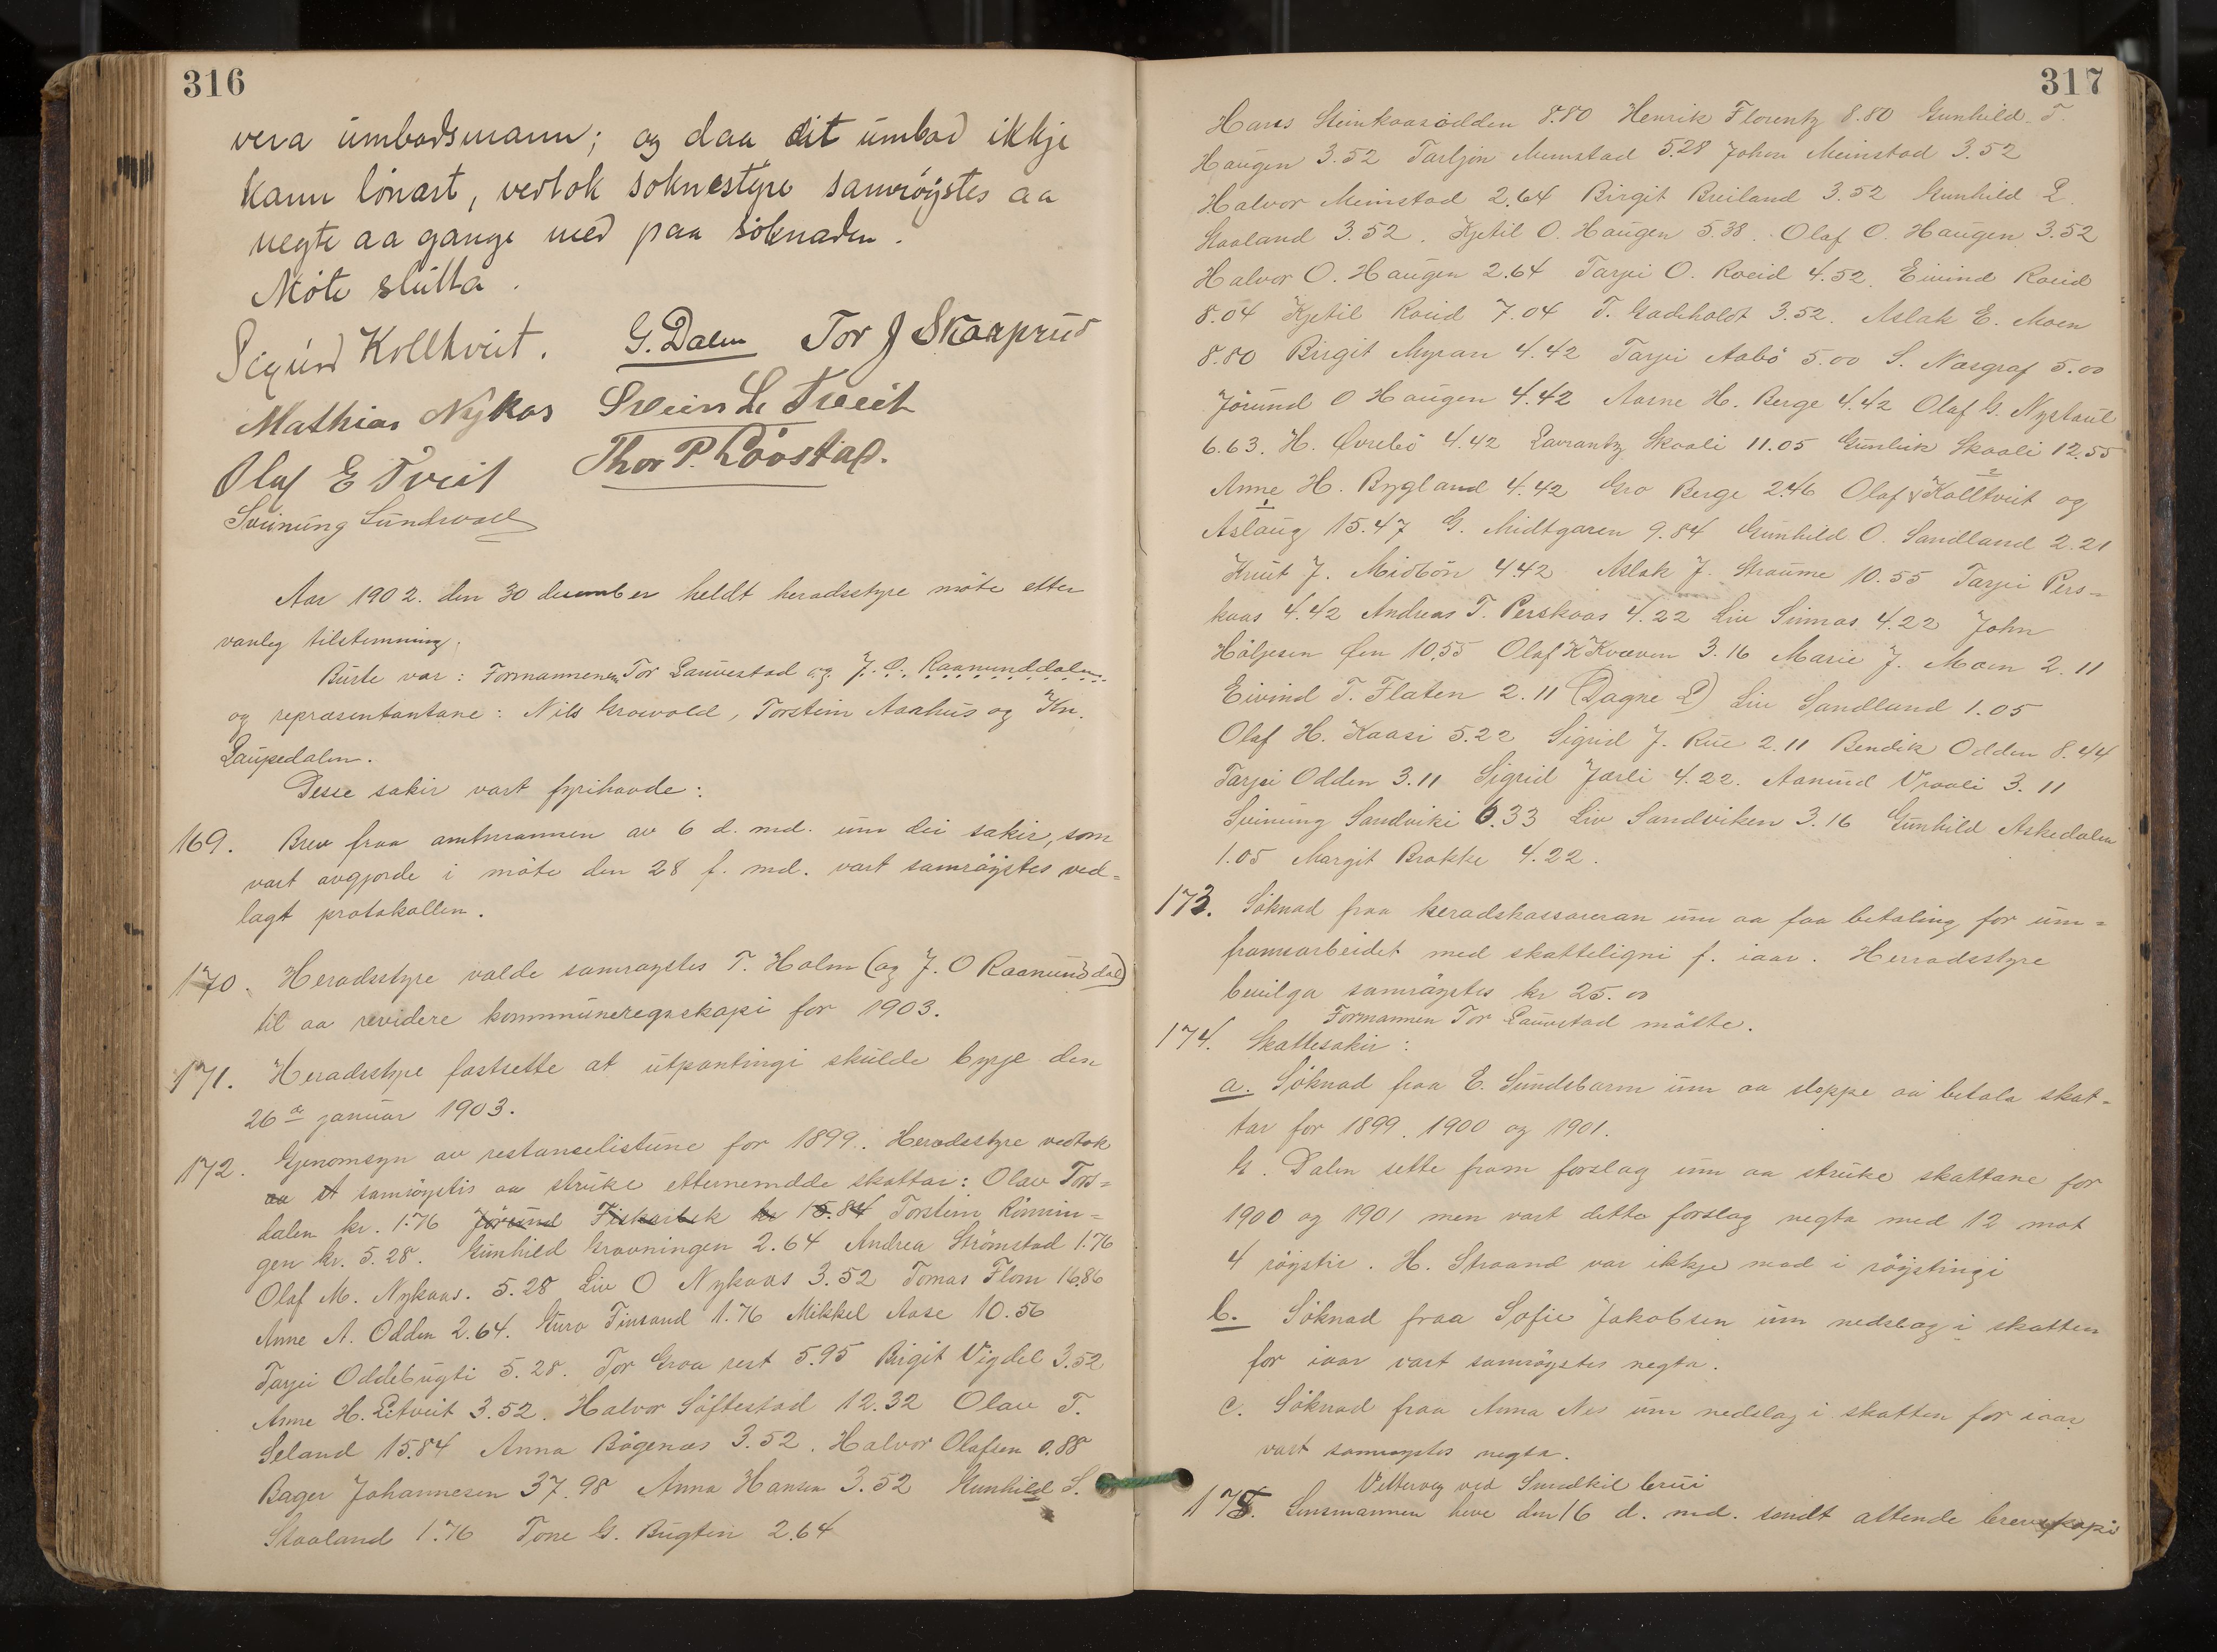 316
vera umbodsmann; og daa dit umbod ikkje
kann lönast, vedtok soknestyre samröystes aa
negte aa gange med paa söknaden.
Möte slutta.
Sigurd Kolltveit. G. Dalen Tor J Skaaprud
Mathias Nykos Svein L. Tveit
Olaf E Tveit Thor P. Löostad.
Sveinung Sundvoll
Aar 1902. den 30 december heldt heradsstyre möte etter
vanleg tilstemning.
Burte var: Formannen Tor Lauvestad og J. O. Raamunddalen
og representantane: Nils Grovold, Torstein Aarhus og Kn.
Laupedalen.
Desse sakir vart fyrihavde:
169. Brev fraa amtmannen av 6 d. md. um dei sakir, som
vart avgjorde i möte den 28 f. md. vart samröystes ved=
lagt protokollen.
170. Heradsstyre valde samröystes T. Holm (og J. O Raamunddal)
til aa revidere kommuneregnskapi for 1903.
171. Heradsstyre fastsette at utpantingi skulde byrje den
26de januar 1903.
172. Gjenomsyn av restanselistune for 1899. Heradsstyre vedtok
aa st samröystis aa struke etternemdde skattar: Olav Tors=
dalen kr. 1.76 Jörund Fiskarbek kr 15.84 Torstein Rönnin=
gen kr. 5.28. Gunhild Grovningen 2.64 Andrea Strömstad 1.76
Olaf M. Nykaas. 5.28 Liv O Nykaas 3.52 Tomas Flom 16.86
Anne A. Odden 2.64. Guro Tinsand 1.76 Mikkel Aase 10.56
Tarjei Oddebugti 5.28. Tor Groa rest 5.95 Birgit Vigdel 3.52
Anne H. Litveit 3.52. Halvor Söftestad 12.32 Olav T.
Seland 15.84 Anna Bögenæs 3.52. Halvor Olafsen 0.88
Bager Johannesen 37.98 Anna Hansen 3.52 Gunhild S.
Staaland 1.76 Tone G. Bugten 2.64
317
Hans Steinkaasodden 8.80 Henrik Florentz 8.80 Gunhild T.
Haugen 3.52 Tarljon Meinstad 5.28 Johon Meinstad 3.52
Halvor Meinstad 2.64 Birgit Breiland 3.52 Gunhild L.
Staaland 3.52. Kjetil O. Haugen 5.38. Olaf O. Haugen 3.52
Halvor O. Haugen 2.64 Tarjei O. Roeid 4.52. Eivind Roeid
8.04 Kjetil Roeid 7.04 T. Gadeholdt 3.52. Aslak E. Moen
8.80 Birgit Myran 4.42 Tarjei Aabö 5.00 S. Nasgraf 5.00
Jörund O Haugen 4.42 Aarne H. Berge 4.42 Olaf G. Nystaul
6.63. H. Øvrebö 4.42 Lavrantz Skaali 11.05 Gunleik Skaali 12.55
Anne H. Bygland 4.42 Gro Berge 2.46 Olaf Kolltveit og
Aslaug 15.47 G. Midtgaren 9.84 Gunhild O. Sandland 2.21
Knut J. Midbön 4.42 Aslak J. Straume 10.55 Tarjei Pers=
kaas 4.42 Andreas T. Perskaas 4.22 Liv Sinnas 4.22 John
Höljesen Øen 10.55 Olaf K Kvæven 3.16 Marie J. Moen 2.11
Eivind T. Flaten 2.11 (Dagne L) Liv Sandland 1.05
Olaf H. Kaasi 5.22 Sigrid J. Rue 2.11 Bendik Odden 8.44
Tarjei Odden 3.11 Sigrid Jarli 4.22. Aanund Vraali 3.11
Sveinung Sandviki 6.33 Liv Sandviken 3.16 Gunhild Askedalen
1.05 Margit Brokke 4.22.
173. Söknad fraa heradskassararan um aa faa betaling for um=
framsarbeidet med skatteligni f. iaar. Herradsstyre
bevilga samröystes kr 25.00
Formannen Tor Lauvstad mötte.
174. Skattesakir:
a. Söknad fraa E. Sundsbarm um aa sleppe aa betala skat=
tar for 1899. 1900 og 1901.
G. Dalen sette fram forslag um aa struke skattane for
1900 og 1901 men vart dette forslag negta med 12 mot
4 röystir. H. Straand var ikkje med i röystingi
b. Söknad fraa Sofie Jakobsen um nedslag i skatten
for iaar vart samröystes negta.
c. Söknad fraa Anna Nes um nedslag i skatten for iaar
vart samröystes negta.
Vetterveg ved Smedkil brui
175. Lensmannen heve den 16 d. md. sendt attende brevskapi